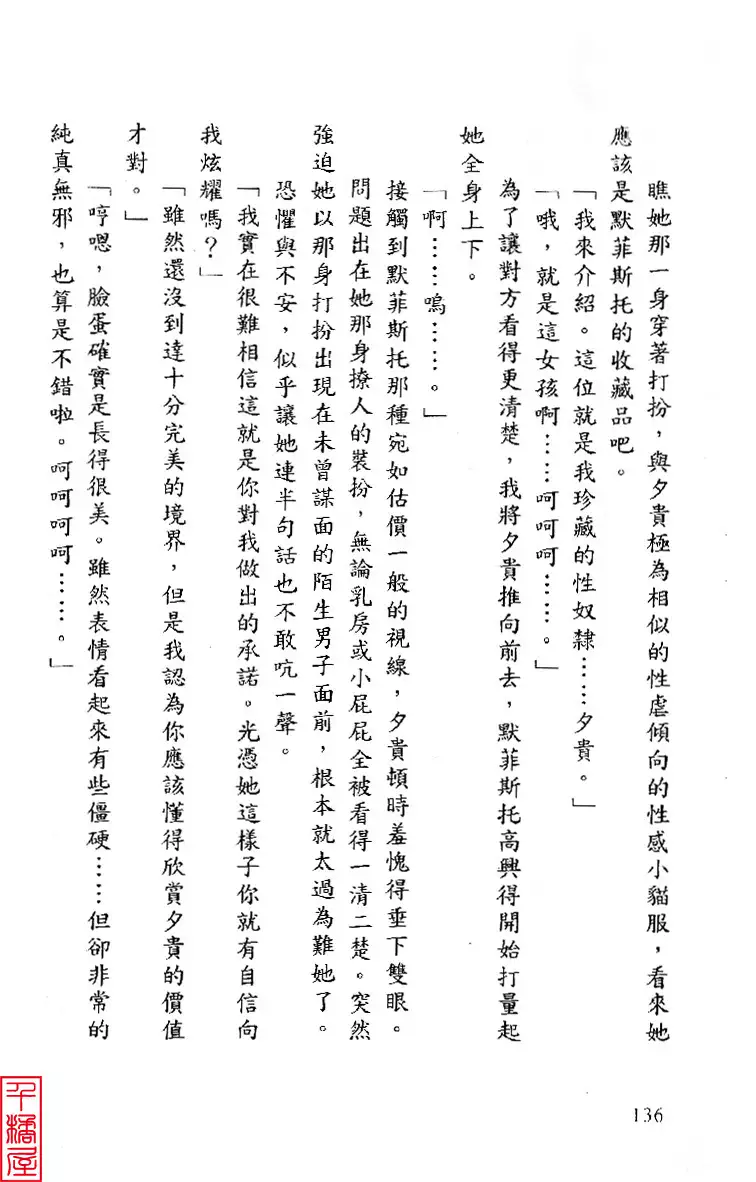 瞧她那一身穿著打扮，與夕貴極為相似的性虐傾向的性感小貓服，看來她
應該是默菲斯托的收藏品吧。
「我來介紹。這位就是我珍藏的性奴隸……夕貴。」
「哦，就是這女孩啊……呵呵呵……。」
為了讓對方看得更清楚，我將夕貴推向前去，默菲斯托高興得開始打量起
她全身上下。
「啊……嗚……。」
接觸到默菲斯托那種宛如估價一般的視線，夕貴頓時羞愧得垂下雙眼。
問題出在她那身撩人的裝扮，無論乳房或小屁屁全被看得一清二楚。突然
強迫她以那身打扮出現在未曾謀面的陌生男子面前，根本就太過為難她了。
恐懼與不安，似乎讓她連半句話也不敢吭一聲。
「我實在很難相信這就是你對我做出的承諾。光憑她這樣子你就有自信向
我炫耀嗎？」
「雖然還沒到達十分完美的境界，但是我認為你應該懂得欣賞夕貴的價值
才對。」
「哼嗯，臉蛋確實是長得很美。雖然表情看起來有些僵硬……但卻非常的
純真無邪，也算是不錯啦。呵呵呵呵……。」
136
千橘屋